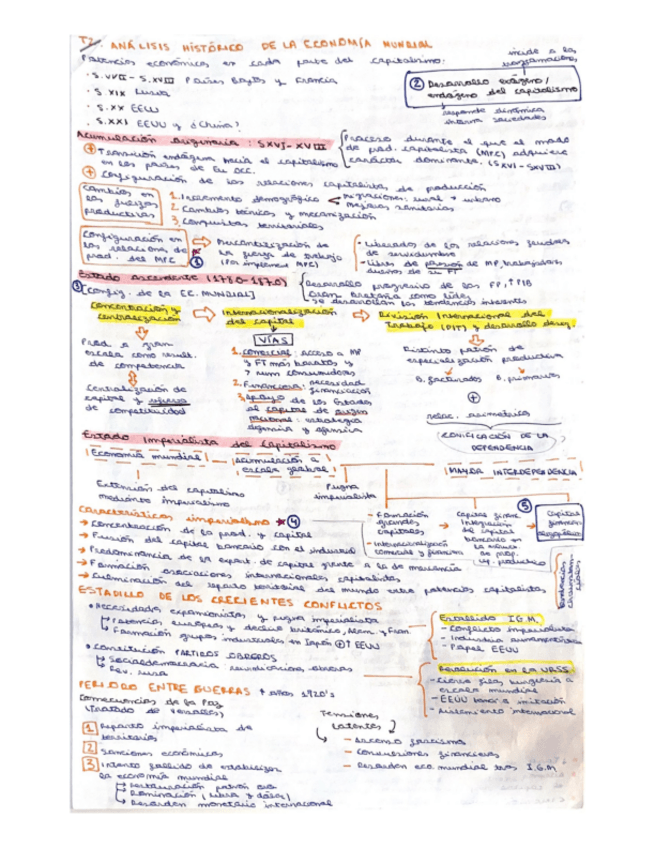 T2. ANÁLISIS HISTÓRICO DE LA ECONOMÍA MUNDIAL
Potencias económicas en cada parte del capitalismo.
· S. XVII - S. XVIII Países Bajos y Francia
· S. XIX
· S. XX EEUU
· S. XXI EEUU y ¿China?
incide a las
② Desarrollo exógeno/
endógeno del capitalismo
responde dinámica
interna sociedades
Acumulación originaria: S.XVI-XVIII
Proceso durante el que el modo
de prod. capitalista (MPC) adquiere
carácter dominante. (S.XVI - S.XVIII)
+ Transición endógena hacia el capitalismo
en los países de Eu. occ.
+ Configuración de las relaciones capitalistas de producción
Cambios en
las fuerzas
productivas
1. Incremento demográfico < migraciones rural → urbano
mejoras sanitarias
2. Cambios técnicos y mecanización
3. Conquistas territoriales
Configuración en
las relaciones de
prod. del MPC
①
Mercantilización de
la fuerza de trabajo
(Por implementar MPC)
- Liberados de las relaciones feudales
de servidumbre
- Libres de posesión de MP, trabajadores
dueños de su FT
Estado ascendente (1780-1870)
③ [Config. de la EC. MUNDIAL]
Desarrollo progresivo de las FP, ↑PIB
Gran Bretaña como líder
Se desarrollan las tendencias inherentes
Concentración y
centralización
Internacionalización
del capital
División Internacional del
Trabajo (DIT) y desarrollo desig.
Prod. a gran
escala como result.
de competencia
Centralización de
capital y
de competitividad
VÍAS
1. Comercial: acceso a MP
y FT más baratos y
> num consumidores
2. Financiera: necesidad
financiación
3. Apoyo de los Estados
al capital de origen
nacional: estrategia
defensiva y ofensiva
Distinto patrón de
especialización productiva
B. facturados B. primarios
+
relac. asimétricas
(CONFIGURACIÓN DE LA
DEPENDENCIA)
Estado Imperialista del Capitalismo
Economía mundial
acumulación a
escala global
MAYOR INTERDEPENDENCIA
Extensión del capitalismo
mediante imperialismo
Pugna
imperialista
- Formación
grandes
capitales
- Internacionalización
comercial y financiera
Capital finan.
Integración
del capital
bancario en
⑤
Capital
financiero
Características imperialismo ★ ④
→ Concentración de la prod. y capital
→ Fusión del capital bancario con el industrial
→ Predominancia de la export. de capital frente a la de mercancía
→ Formación asociaciones internacionales capitalistas
→ Culminación del reparto territorial del mundo entre potencias capitalistas
ESTALLIDO DE LOS CRECIENTES CONFLICTOS
• Necesidades expansionistas y pugna imperialista
↳ Potencias europeas y declive británico, Alem. y Fran.
↳ Formación grupos industriales en Japón y ↑ EEUU
• Constitución PARTIDOS OBREROS
↳ Socialdemocracia reivindicaciones obreras
↳ Rev. rusa
Estallido I.G.M.
- Conflicto imperialista
- Industria armamentística
- Papel EEUU
Revolución en la URSS
- Cierre filas burguesía a
escala mundial
- EEUU
- Aislamiento internacional
PERIODO ENTRE GUERRAS + años 1920's
Consecuencias de la Paz
(Tratado de Versalles)
1 Reparto imperialista de
territorios
2 Sanciones económicas
3 Intento fallido de estabilizar
la economía mundial
↳ Restauración patrón oro
↳ Dominación (libra y dólar)
↳ Desorden monetario internacional
Tensiones
latentes
- Ascenso fascismo
- Convulsiones financieras
- Desorden eco. mundial tras I.G.M